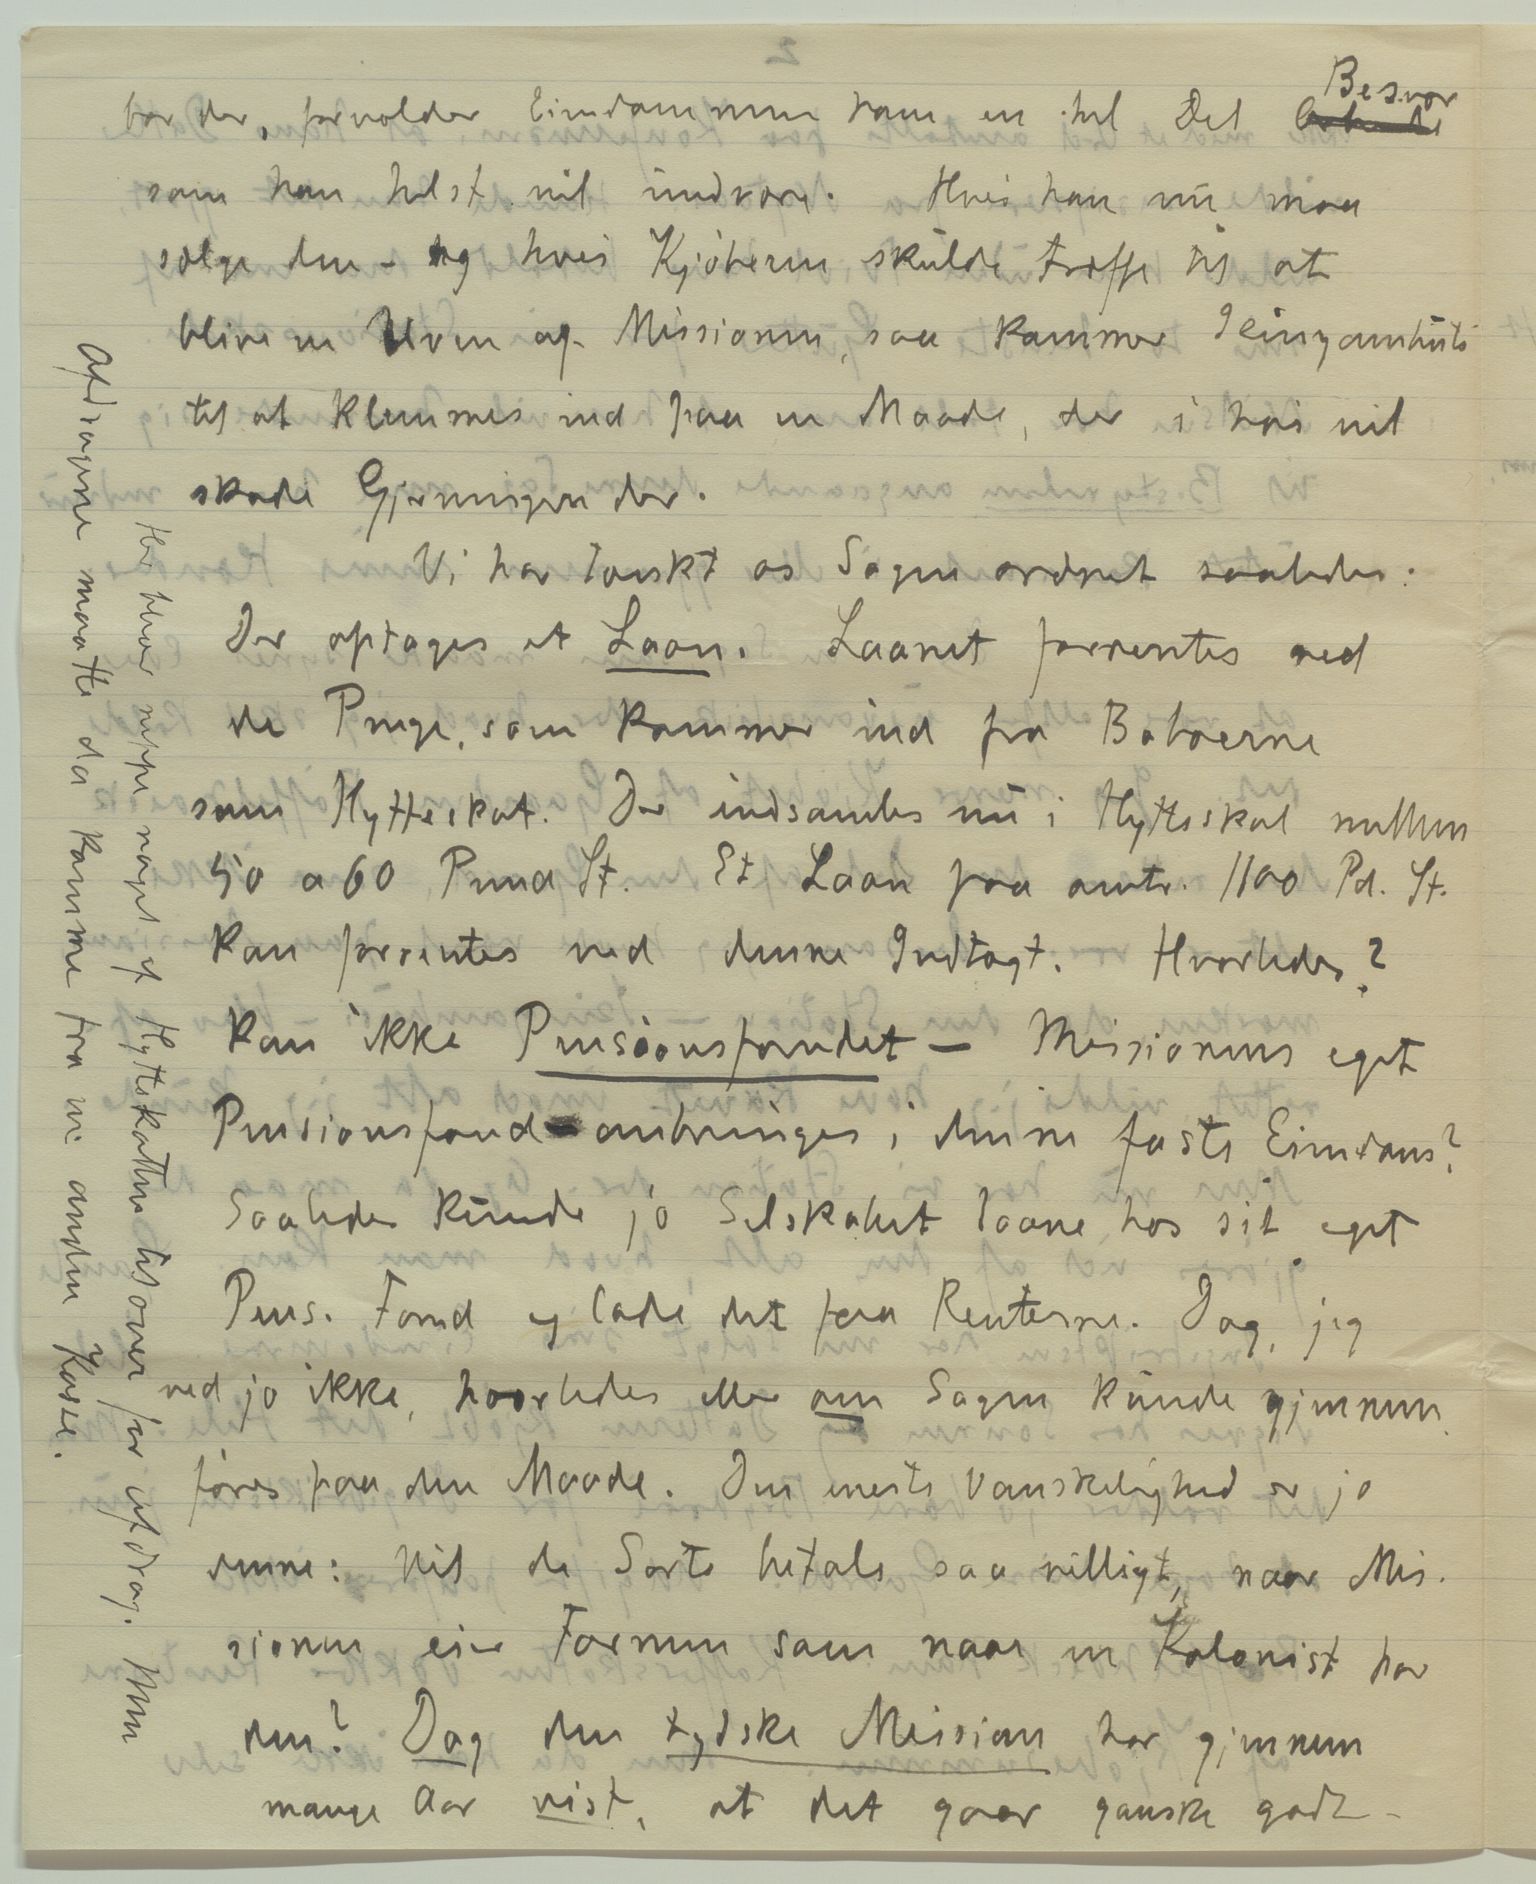 2
bor der, forvolder Eiendommen ham en hel Del Besvær
som han helst vil undvære. Hvis han nu maa
sælge den - og hvis Kjöberen skulde træffe til at
blive en Uven af Missionen, saa kommer
til at klemmes ind paa en Maade, der i höi vil
skade Gjerningen der.
Vi har tænkt os Sagen ordnet saaledes:
Der optages et Laan. Laanet forrentes ved
de Penge, som kommer ind fra Beboerne
som Hytteskat. Der indsamles nu i Hytteskat mellem
50 a 60 Pund St. Et Laan paa omtr. 1100 Pd. St.
kan forrentes ved denne Indtægt. Hvorledes?
Kan ikke Pensionsfondet - Missionens eget
Pensionsfond - anbringes i denne faste Eiendom?
Saaledes kunde jo Selskabet laane hos sit eget
Pens. Fond og lade det faa Renterne. Dog, jeg
ved jo ikke, hvorledes eller om Sagen kunde gjennem
föres paa den Maade. Den meste Vanskelighed er jo
denne: Vil de Sorte betale saa villigt, naar Mis-
sionen eier Farmen som naar en Kolonist har
den? Dog den tydske Mission har gjennem
mange Aar vist, at det gaar ganske godt -
Her blev neppe noget af Hytteskatten tilovers for Afdrag. Men
Afdragene maatte da komme fra en anden Kasse.